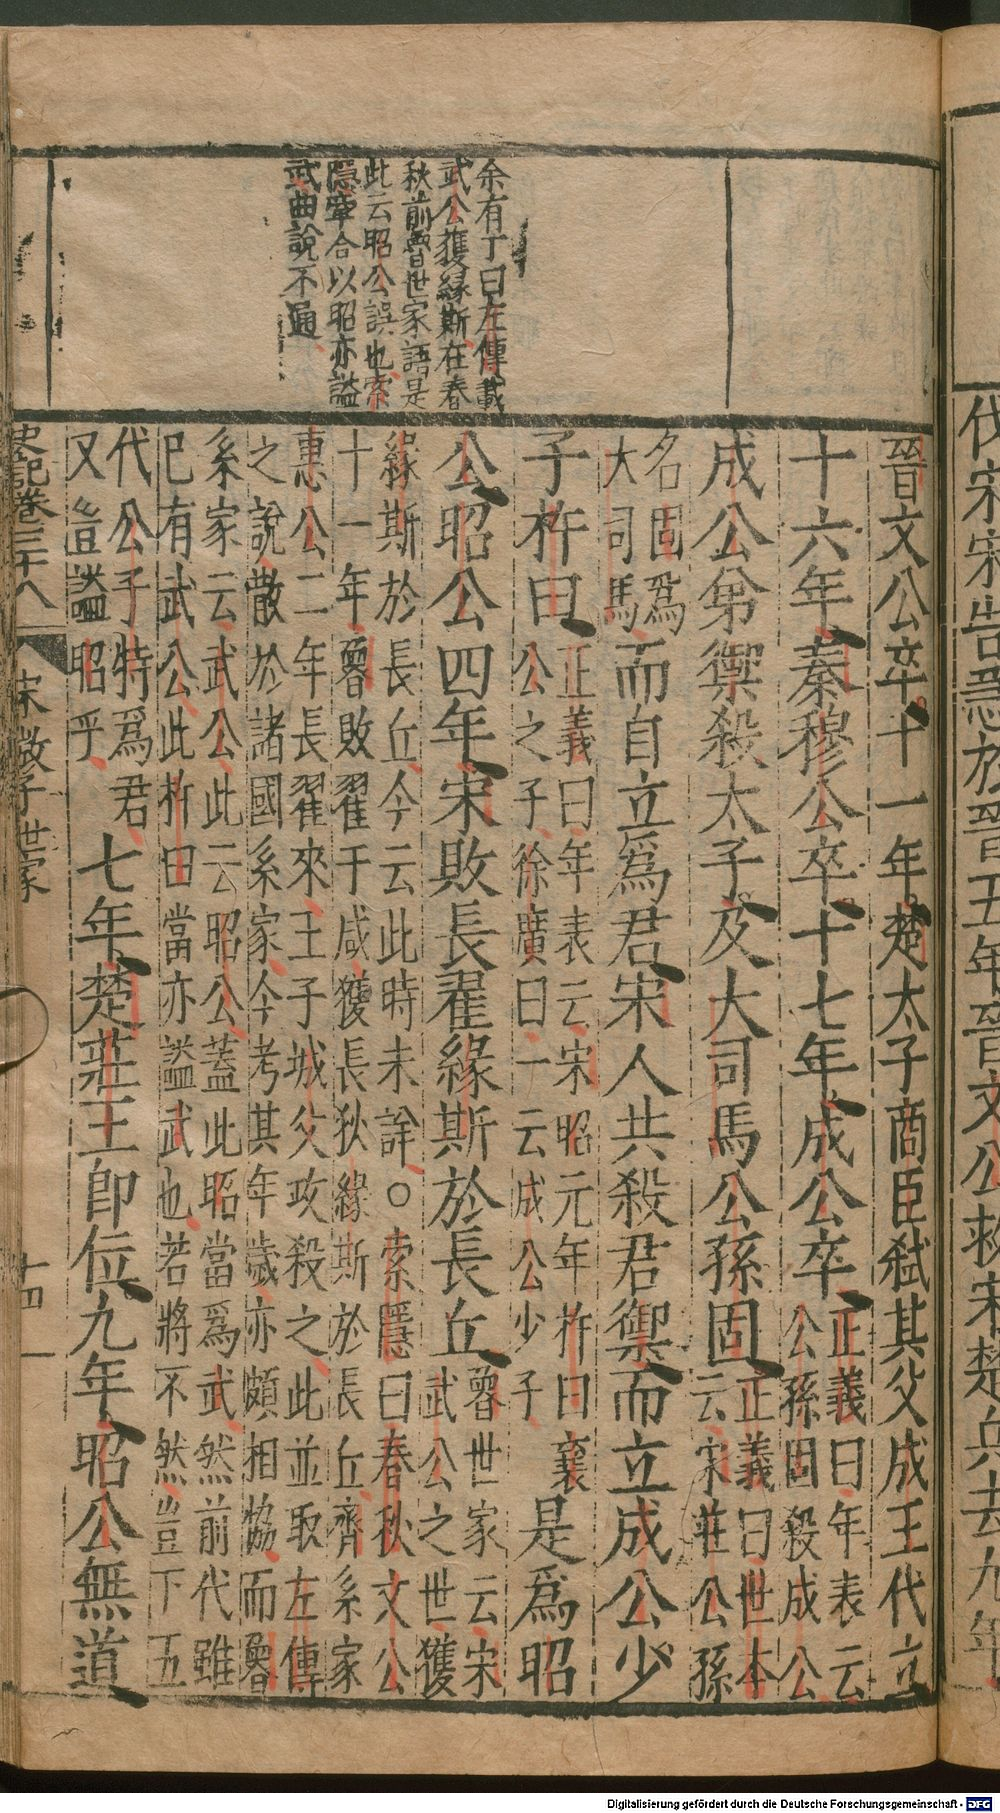 伐宋宋告急於晉五年晉文公救宋楚兵去九年
余有丁曰左傳載
武公獲緣斯在春
秋前魯世家語是
此云昭公誤也索
隱牽合以昭亦謚
武曲說不通
晉文公卒十一年楚太子商臣弒其父成王代立
十六年秦穆公卒十七年成公卒正義曰年表云
公孫固殺成公
成公弟禦殺太子及大司馬公孫固正義曰世本
云宋莊公孫
名固爲
大司馬而自立爲君宋人共殺君禦而立成公少
子杵臼正義曰年表云宋昭元年杵臼襄
公之子徐廣曰一云成公少子是爲昭
公昭公四年宋敗長翟緣斯於長丘魯世家云宋
武公之世獲
緣斯於長丘今云此時未詳○索隱曰春秋文公
十一年魯敗翟于咸獲長狄緣斯於長丘齊系家
惠公二年長翟來王子城父攻殺之此並取左傳
之說散於諸國系家今考其年歲亦頗相協而魯
系家云武公此云昭公蓋此昭當爲武然前代雖
已有武公此杵臼當亦謚武也若將不然豈下五
代公子特爲君
又豈謚昭乎七年楚莊王卽位九年昭公無道
史記卷三十八 宋微子世家 十四
Digitalisierung gefördert durch die Deutsche Forschungsgemeinschaft - DFG